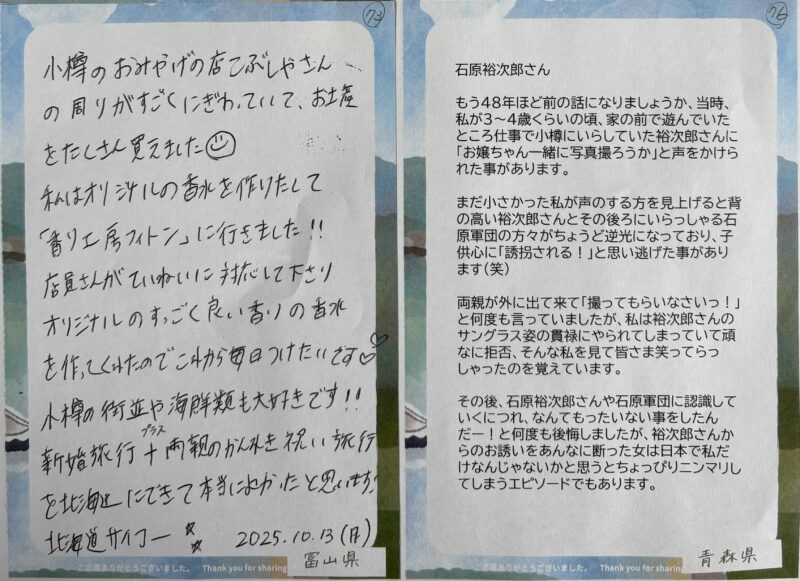 73
小樽のおみやげの店こぶしやさん
の周りがすごくにぎわっていて、お土産
をたくさん買えました
私はオリジナルの香水を作りたして
「香り工房フィトン」に行きました!!
店員さんがていねいに対応して下さり
オリジナルのすっごく良い香りの香水
を作ってくれたのでこれから毎日つけたいです♡♡
小樽の街並や海鮮類も大好きです!!
新婚旅行+両親のかんれき祝い旅行
プラス
を北海道にできて本当によかったと思います!
北海道サイコー
2025.10.13(月)
富山県
ご応募ありがとうございました。 Thank you for sharing
76
石原裕次郎さん
もう48年ほど前の話になりましょうか、当時、
私が3~4歳くらいの頃、家の前で遊んでいた
ところ仕事で小樽にいらしていた裕次郎さんに
「お嬢ちゃん一緒に写真撮ろうか」と声をかけら
れた事があります。
まだ小さかった私が声のする方を見上げると背
の高い裕次郎さんとその後ろにいらっしゃる石
原軍団の方々がちょうど逆光になっており、子
供心に「誘拐される!」と思い逃げた事がありま
す(笑)
両親が外に出て来て「撮ってもらいなさいっ!」
と何度も言っていましたが、私は裕次郎さんの
サングラス姿の貫禄にやられてしまっていて頑
なに拒否、そんな私を見て皆さま笑ってらっ
しゃったのを覚えています。
その後、石原裕次郎さんや石原軍団に認識して
いくにつれ、なんてもったいない事をしたん
だー!と何度も後悔しましたが、裕次郎さんから
のお誘いをあんなに断った女は日本で私だ
けなんじゃないかと思うとちょっぴりニンマリし
てしまうエピソードでもあります。
青森県
ご応募ありがとうございました。 Thank you for sharing